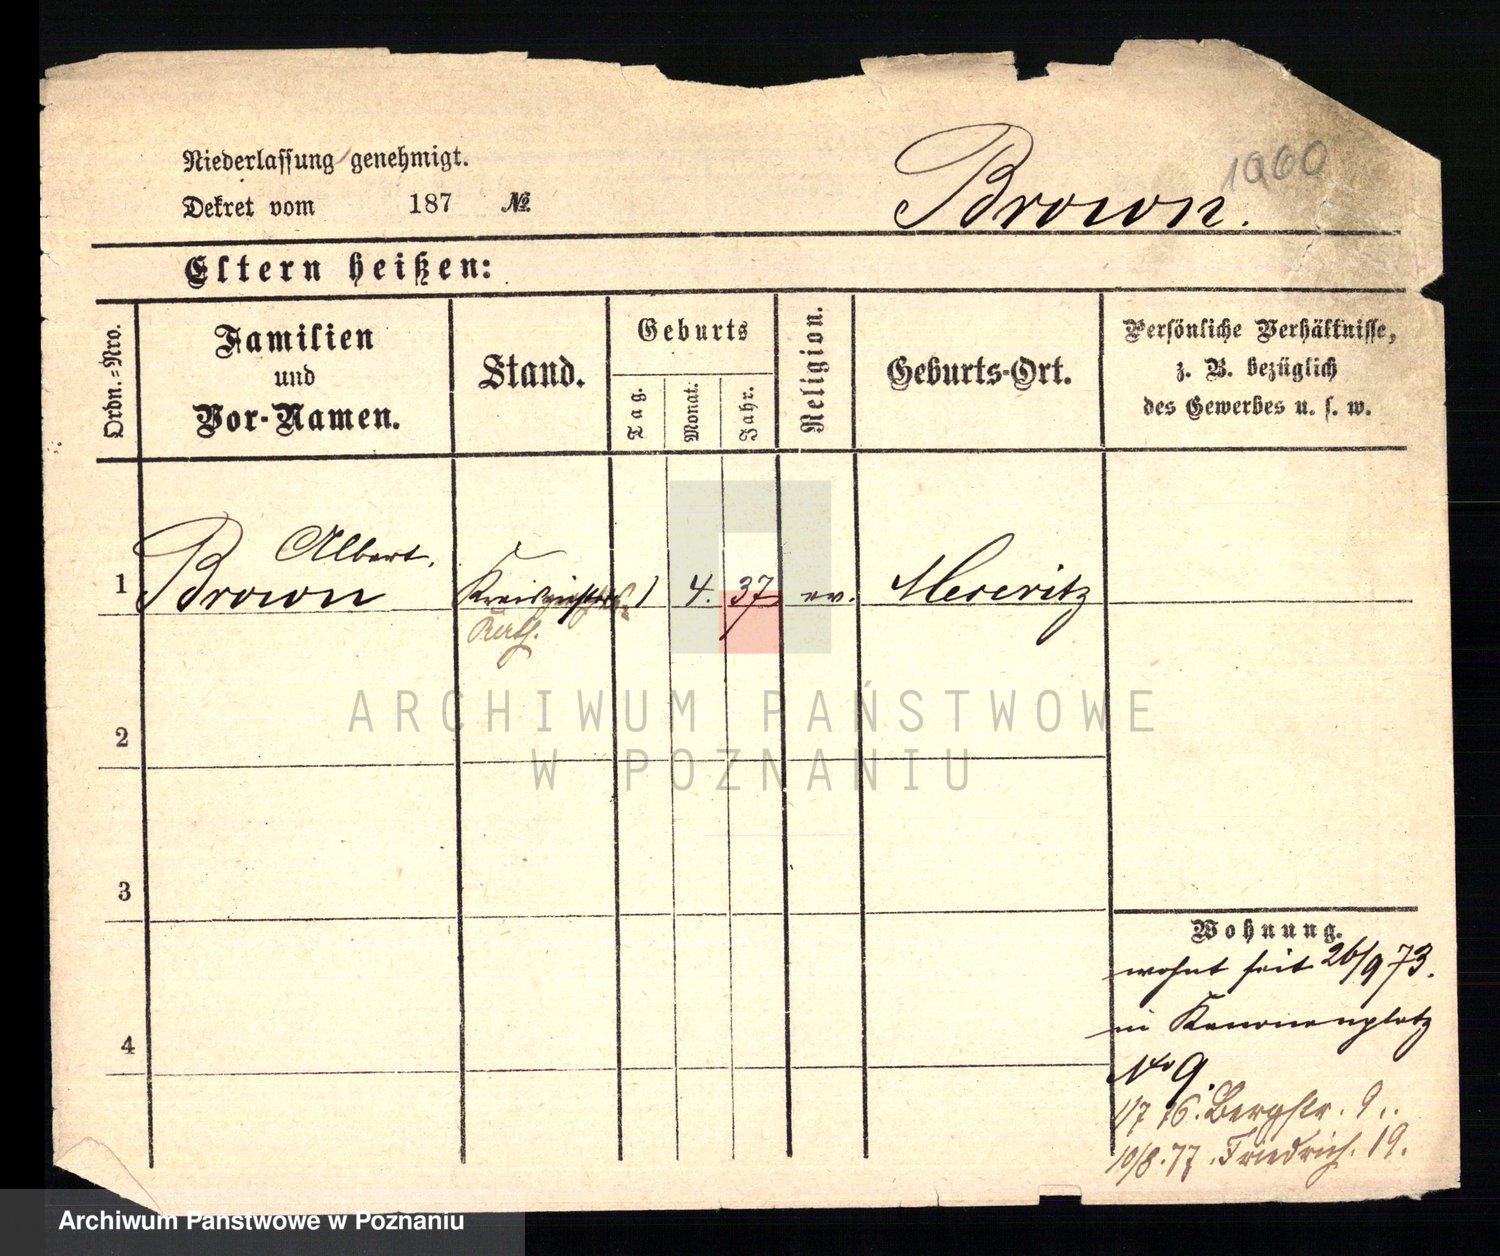 Niederlassung genehmigt.
Dekret vom 187 №
1060
Brown.
Eltern heißen:
Ordn.-Nro.
Familien
und
Vor-Namen.
Stand.
Geburts
Tag.
Monat.
Jahr.
Religion.
Geburts-Ort.
Persönliche Verhältnisse,
z. B. bezüglich
des Gewerbes u. s. w.
Albert.
1 Brown 1 4. 37 ev. Meseritz
2
3
4
Wohnung.
wohnt seit 26/9 73.
in Kanonenplatz
No 9.
1/7 76. Bergstr. 9.
10/8.77. Friedrich. 19.
ARCHIWUM PAŃSTWOWE
W POZNANIU
Archiwum Państwowe w Poznaniu